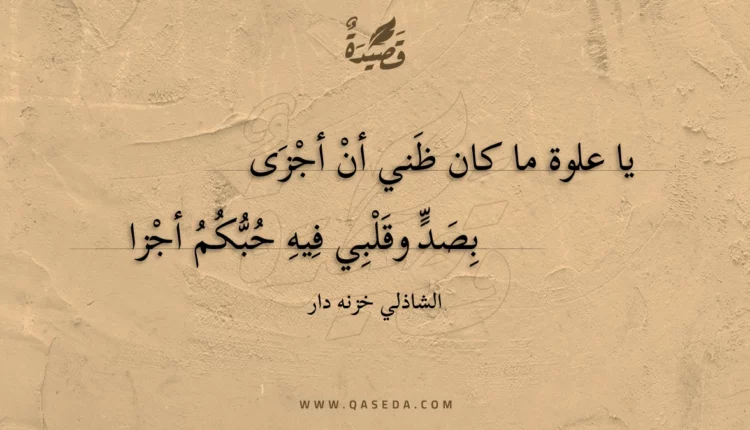 قَصِيْدَةٌ
يا علوة ما كان ظَني أنْ أجْزَى
بِصَدٍّ وقَلْبِي فِيهِ حُبُّكُمُ أجْزا
الشاذلي خزنه دار
WWW.QASEDA.COM